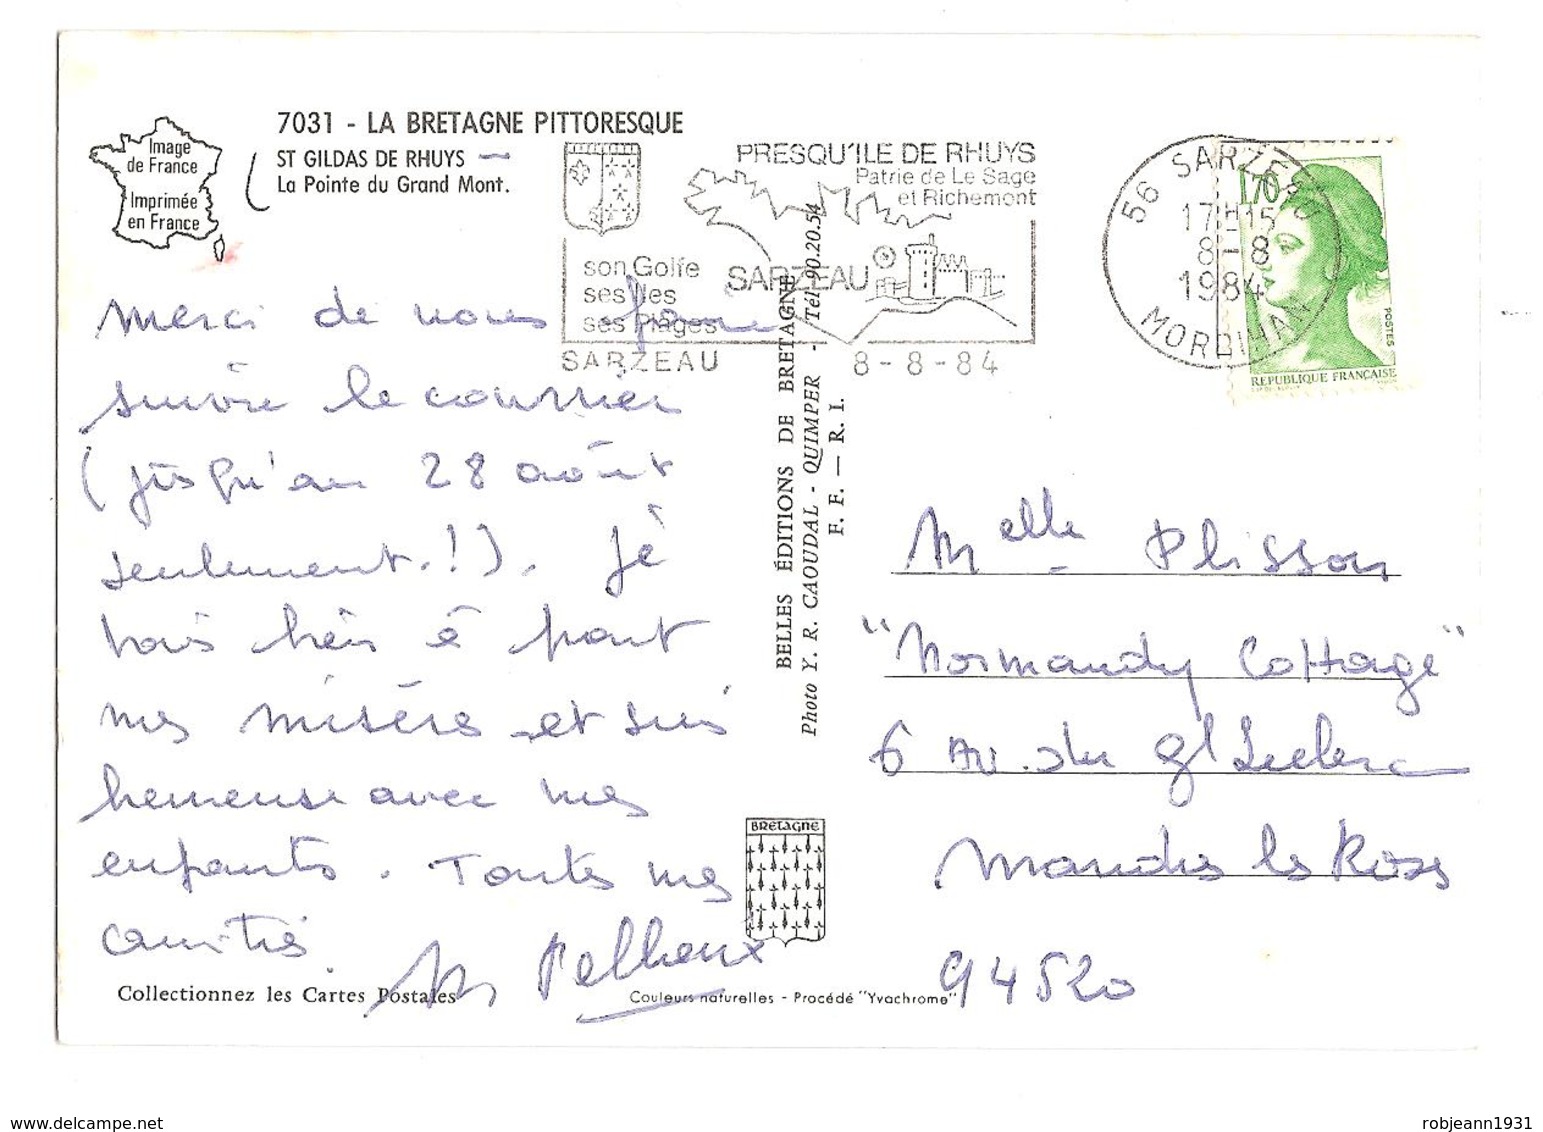 7031 - LA BRETAGNE PITTORESQUE
ST GILDAS DE RHUYS
La Pointe du Grand Mont.
Image
de France
Imprimée
en France
PRESQU'ILE DE RHUYS
Patrie de Le Sage
et Richemont
son Golfe
ses Iles
ses Plages
SARZEAU
SARZEAU
8-8-84
56 SARZEAU
17H15
8-8
1984
MORBIHAN
1,70
POSTES
REPUBLIQUE FRANÇAISE
Merci de nous faire
suivre le courrier
(jusqu'au 28 août
seulement.!). Je
vais bien à part
mes misères et suis
heureuse avec mes
enfants. Toutes mes
amitiés.
M Pelheux
BELLES ÉDITIONS DE BRETAGNE
Photo Y. R. CAOUDAL - QUIMPER - Tél. 90.20.54
F. F. — R. I.
Melle Plisson
"Normandy Cottage"
6 Av. du Gl Leclerc
Mandres les Roses
94520
BRETAGNE
Collectionnez les Cartes Postales
Couleurs naturelles - Procédé "Yvachrome"
www.delcampe.net
robjeann1931